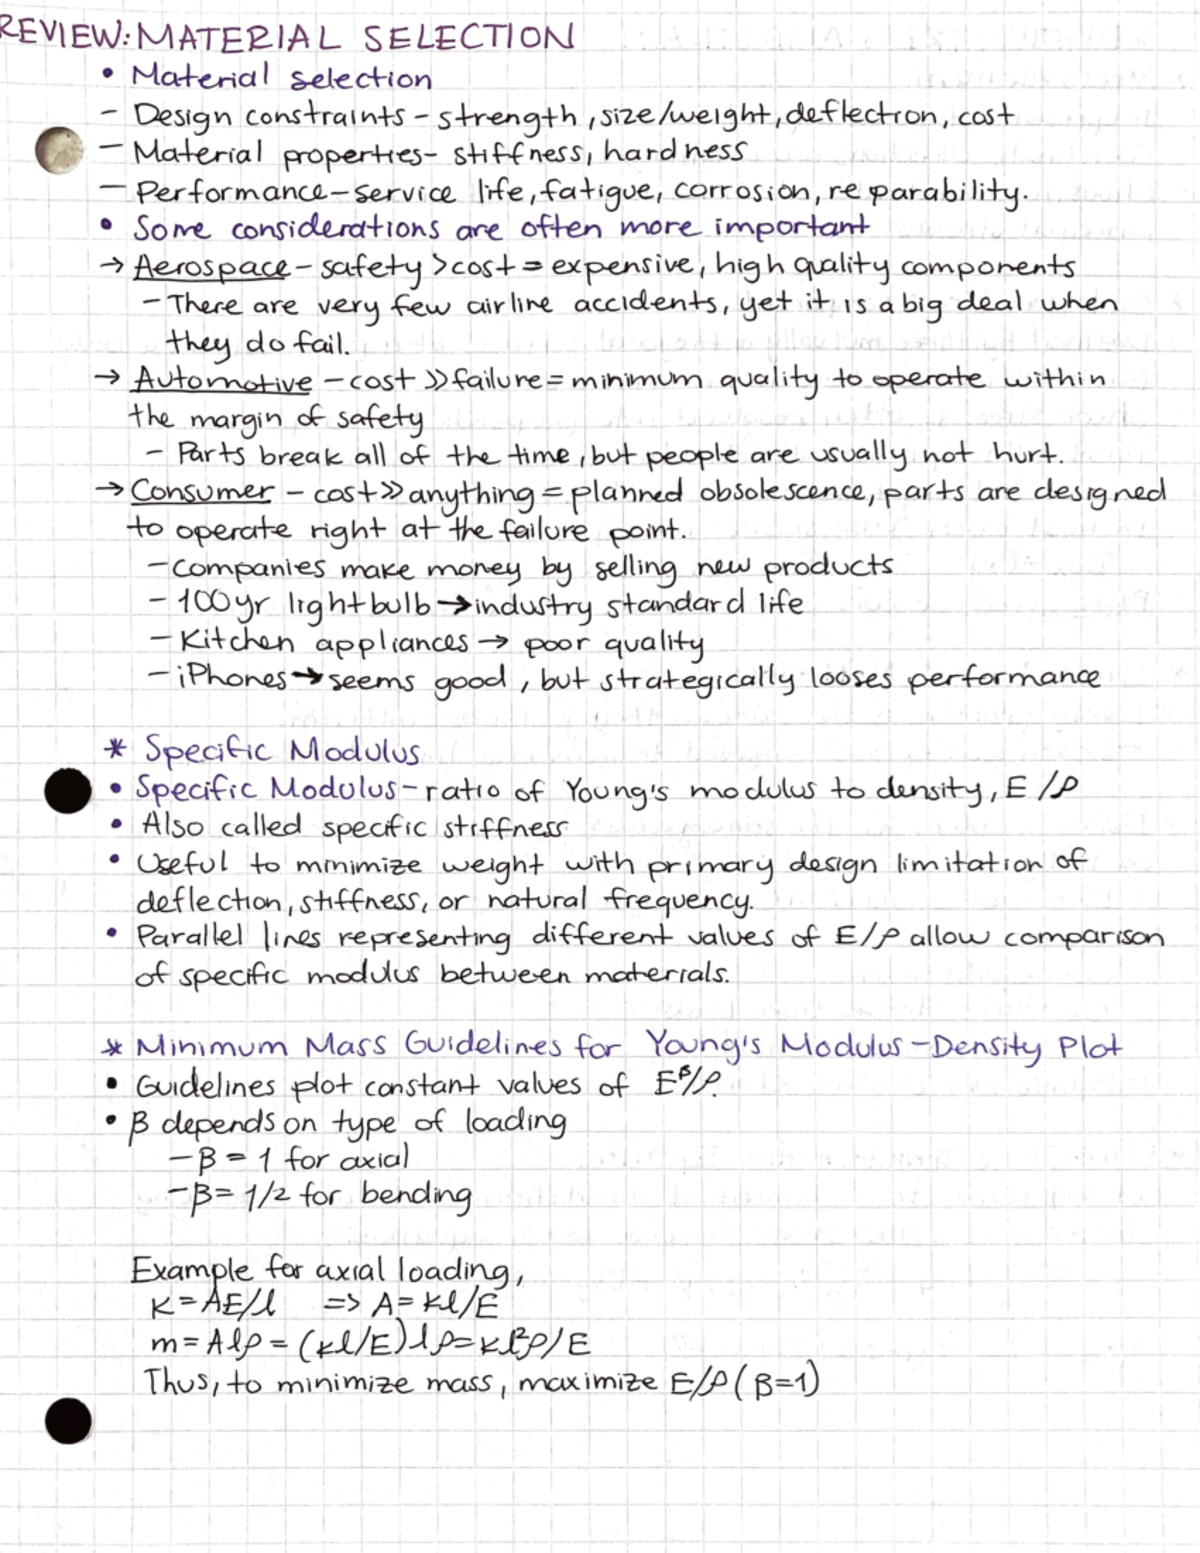 REVIEW: MATERIAL SELECTION
• Material selection
- Design constraints - strength, size/weight, deflectron, cost
- Material properties- stiffness, hardness
- Performance-service life, fatigue, corrosion, reparability.
• Some considerations are often more important
→ Aerospace - safety >cost = expensive, high quality components
- There are very few airline accidents, yet it is a big deal when
they do fail.
→ Automotive - cost >> failure = minimum quality to operate within
the margin of safety
- Parts break all of the time, but people are usually not hurt.
→ Consumer - cost >> anything = planned obsolescence, parts are designed
to operate right at the failure point.
- companies make money by selling new products
- 100yr lightbulb → industry standard life
- Kitchen appliances → poor quality
- iPhones → seems good, but strategically looses performance
* Specific Modulus
• Specific Modulus - ratio of Young's modulus to density, E/ρ
• Also called specific stiffness
• Useful to minimize weight with primary design limitation of
deflection, stiffness, or natural frequency.
• Parallel lines representing different values of E/ρ allow comparison
of specific modulus between materials.
* Minimum Mass Guidelines for Young's Modulus-Density Plot
• Guidelines plot constant values of E^β/ρ.
• β depends on type of loading
- β = 1 for axial
- β = 1/2 for bending
Example for axial loading,
K = AE/l => A = Kl/E
m = Alρ = (kl/E)lρ = kl²ρ/E
Thus, to minimize mass, maximize E/ρ (β=1)